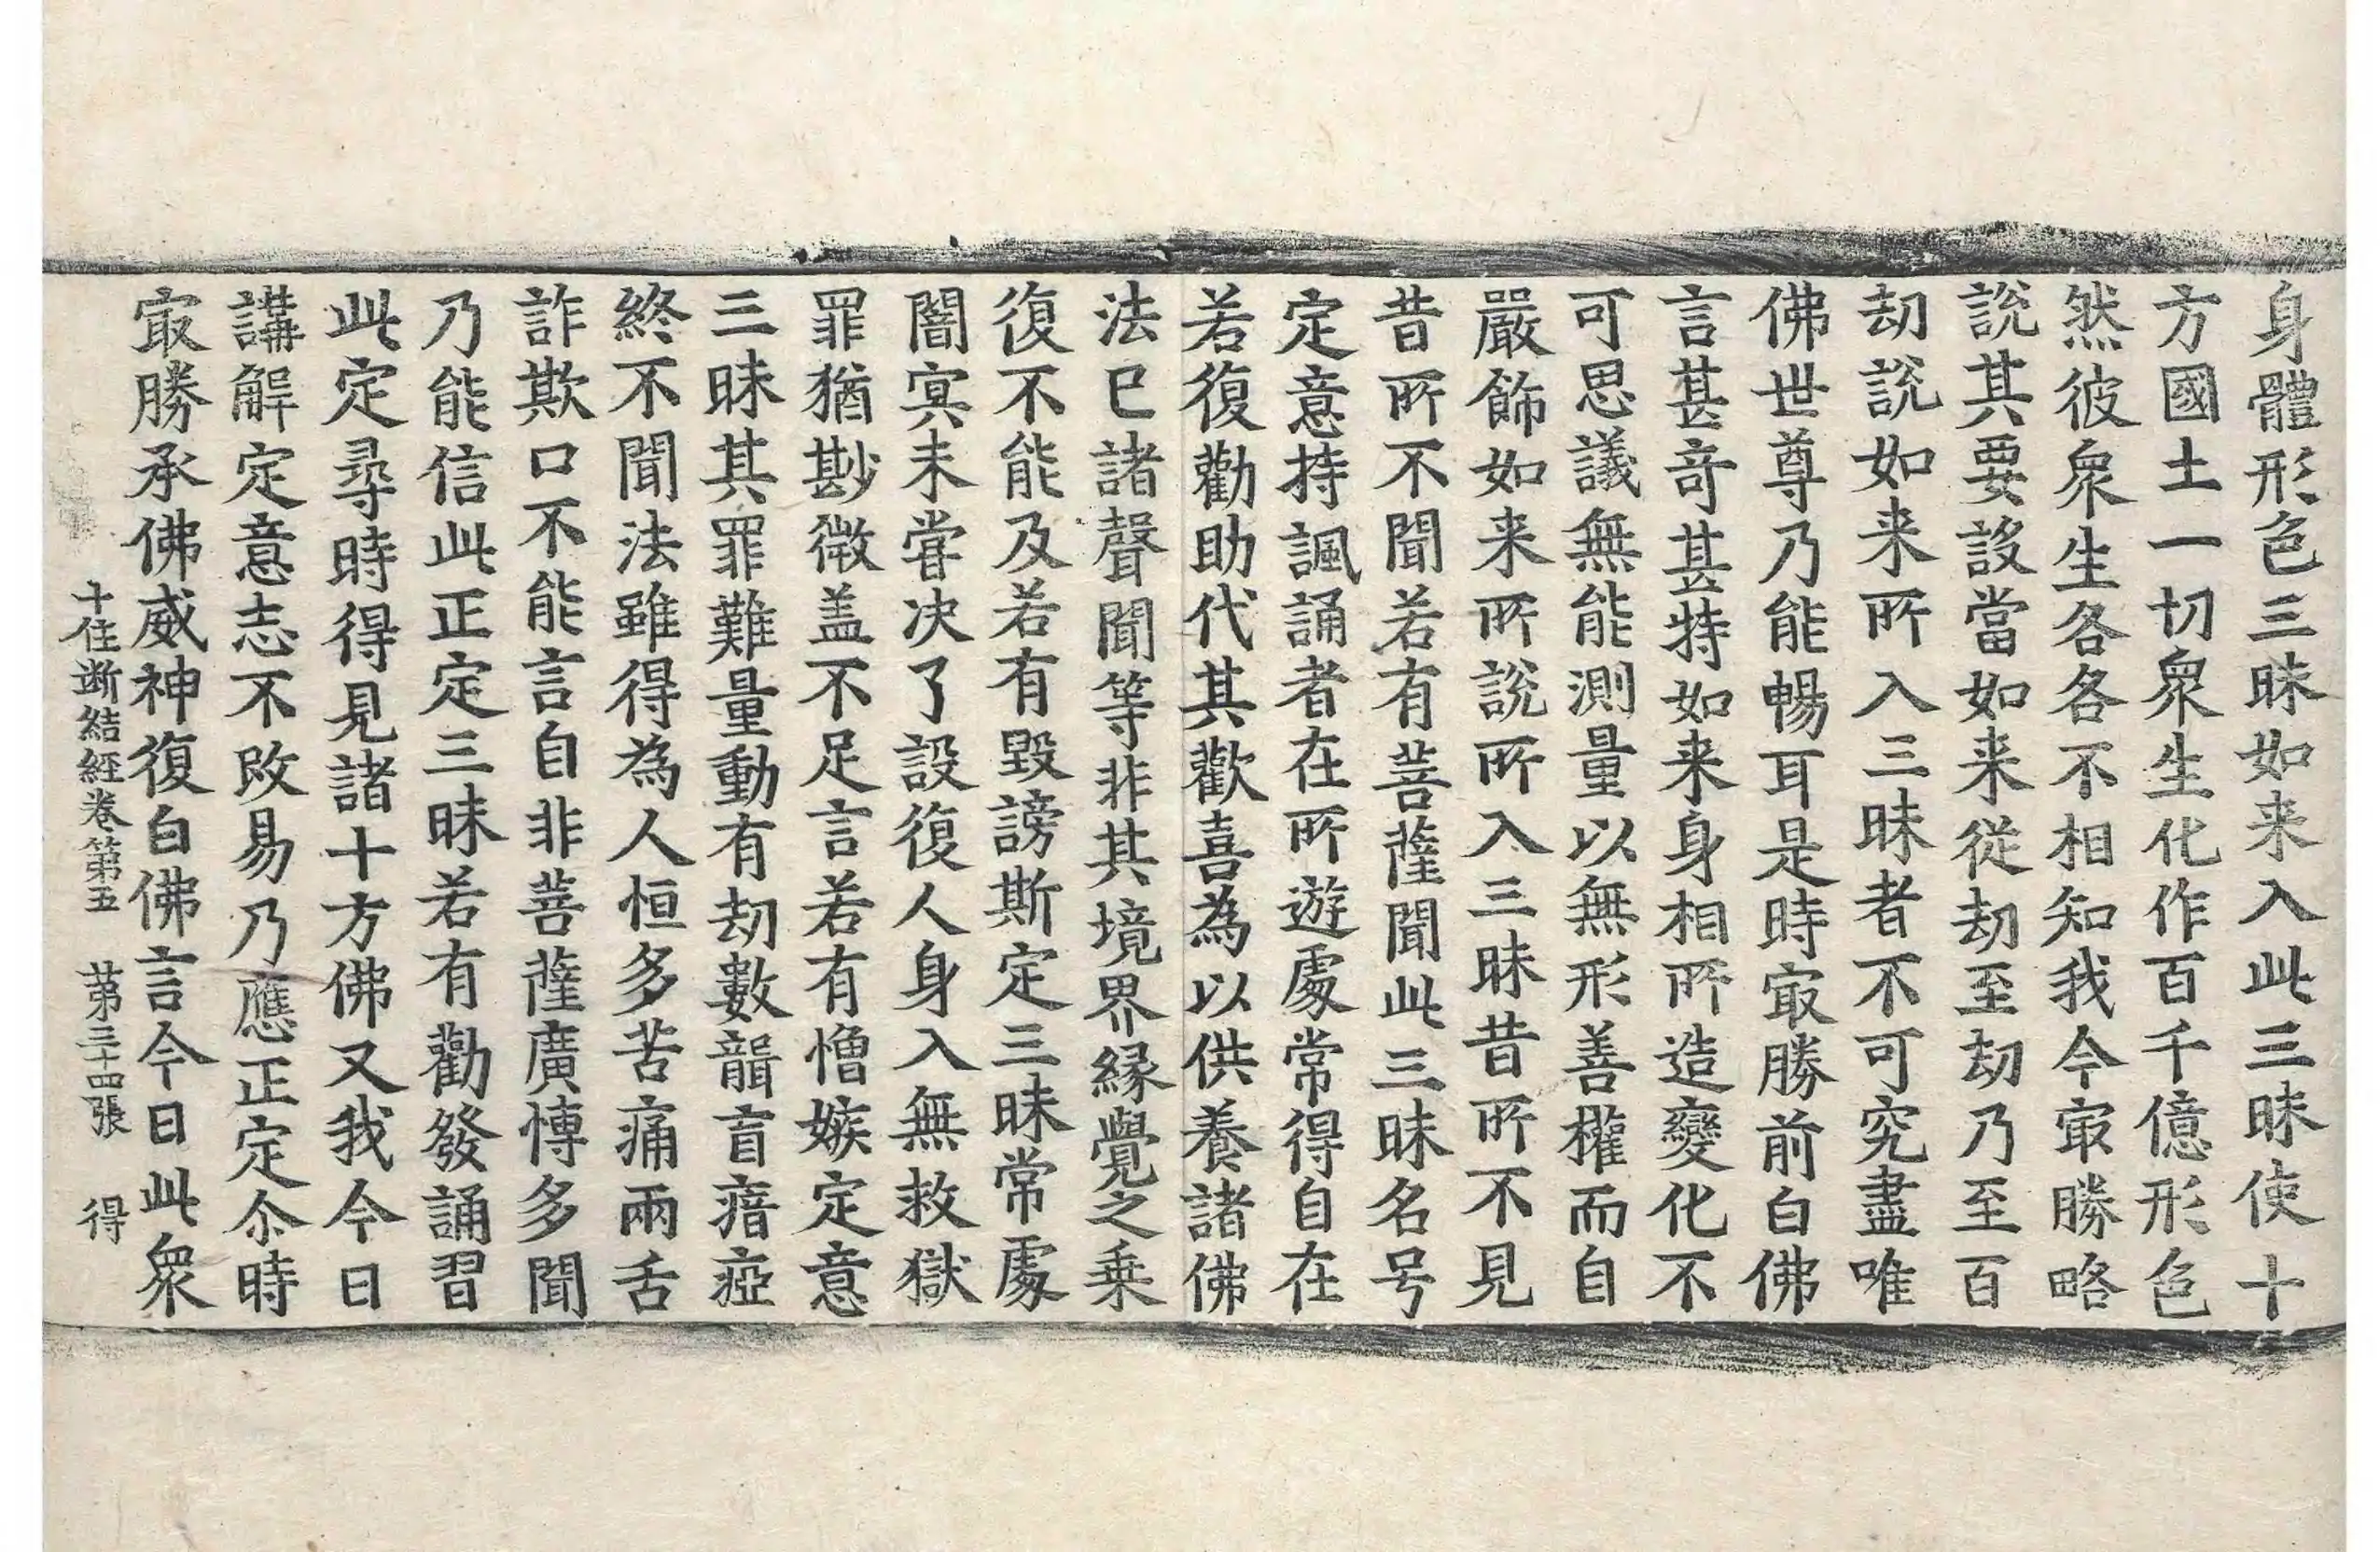 身體形色三昧如来入此三昧使十
方國土一切衆生化作百千億形色
然彼衆生各各不相知我今冣勝略
說其要設當如来從劫至劫乃至百
劫說如来所入三昧者不可究盡唯
佛世尊乃能暢耳是時冣勝前白佛
言甚奇甚特如来身相所造變化不
可思議無能測量以無形善權而自
嚴飾如来所說所入三昧昔所不見
昔所不聞若有菩薩聞此三昧名号
定意持諷誦者在所遊處常得自在
若復勸助代其歡喜為以供養諸佛
法已諸聲聞等非其境界縁覺之乗
復不能及若有毀謗斯定三昧常處
闇冥未甞决了設復人身入無救獄
罪猶尠微盖不足言若有憎嫉定意
三昧其罪難量動有劫數聾盲瘖瘂
終不聞法雖得為人恒多苦痛兩舌
詐欺口不能言自非菩薩廣博多聞
乃能信此正定三昧若有勸發誦習
此定尋時得見諸十方佛又我今日
講解定意志不改易乃應正定尒時
冣勝承佛威神復白佛言今日此衆
十住断結經卷第五 苐三十四張 得